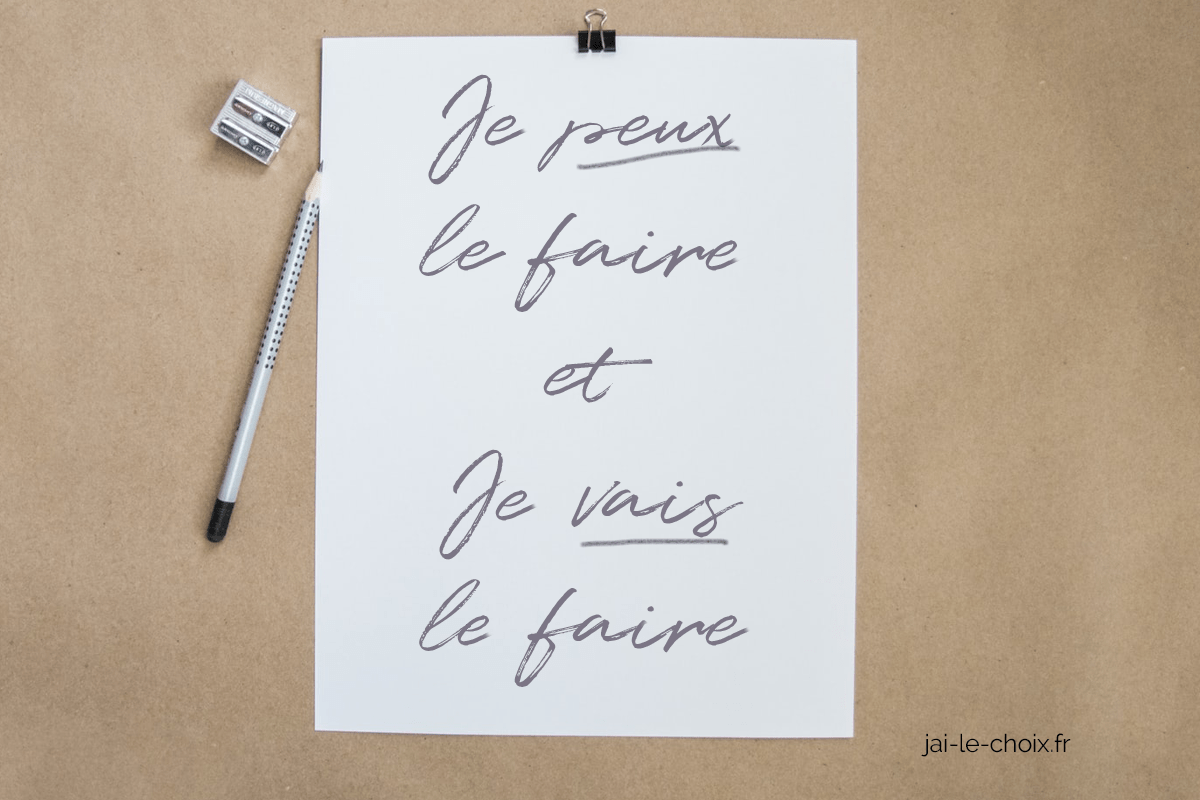 Je peux
le faire
et
Je vais
le faire
jai-le-choix.fr